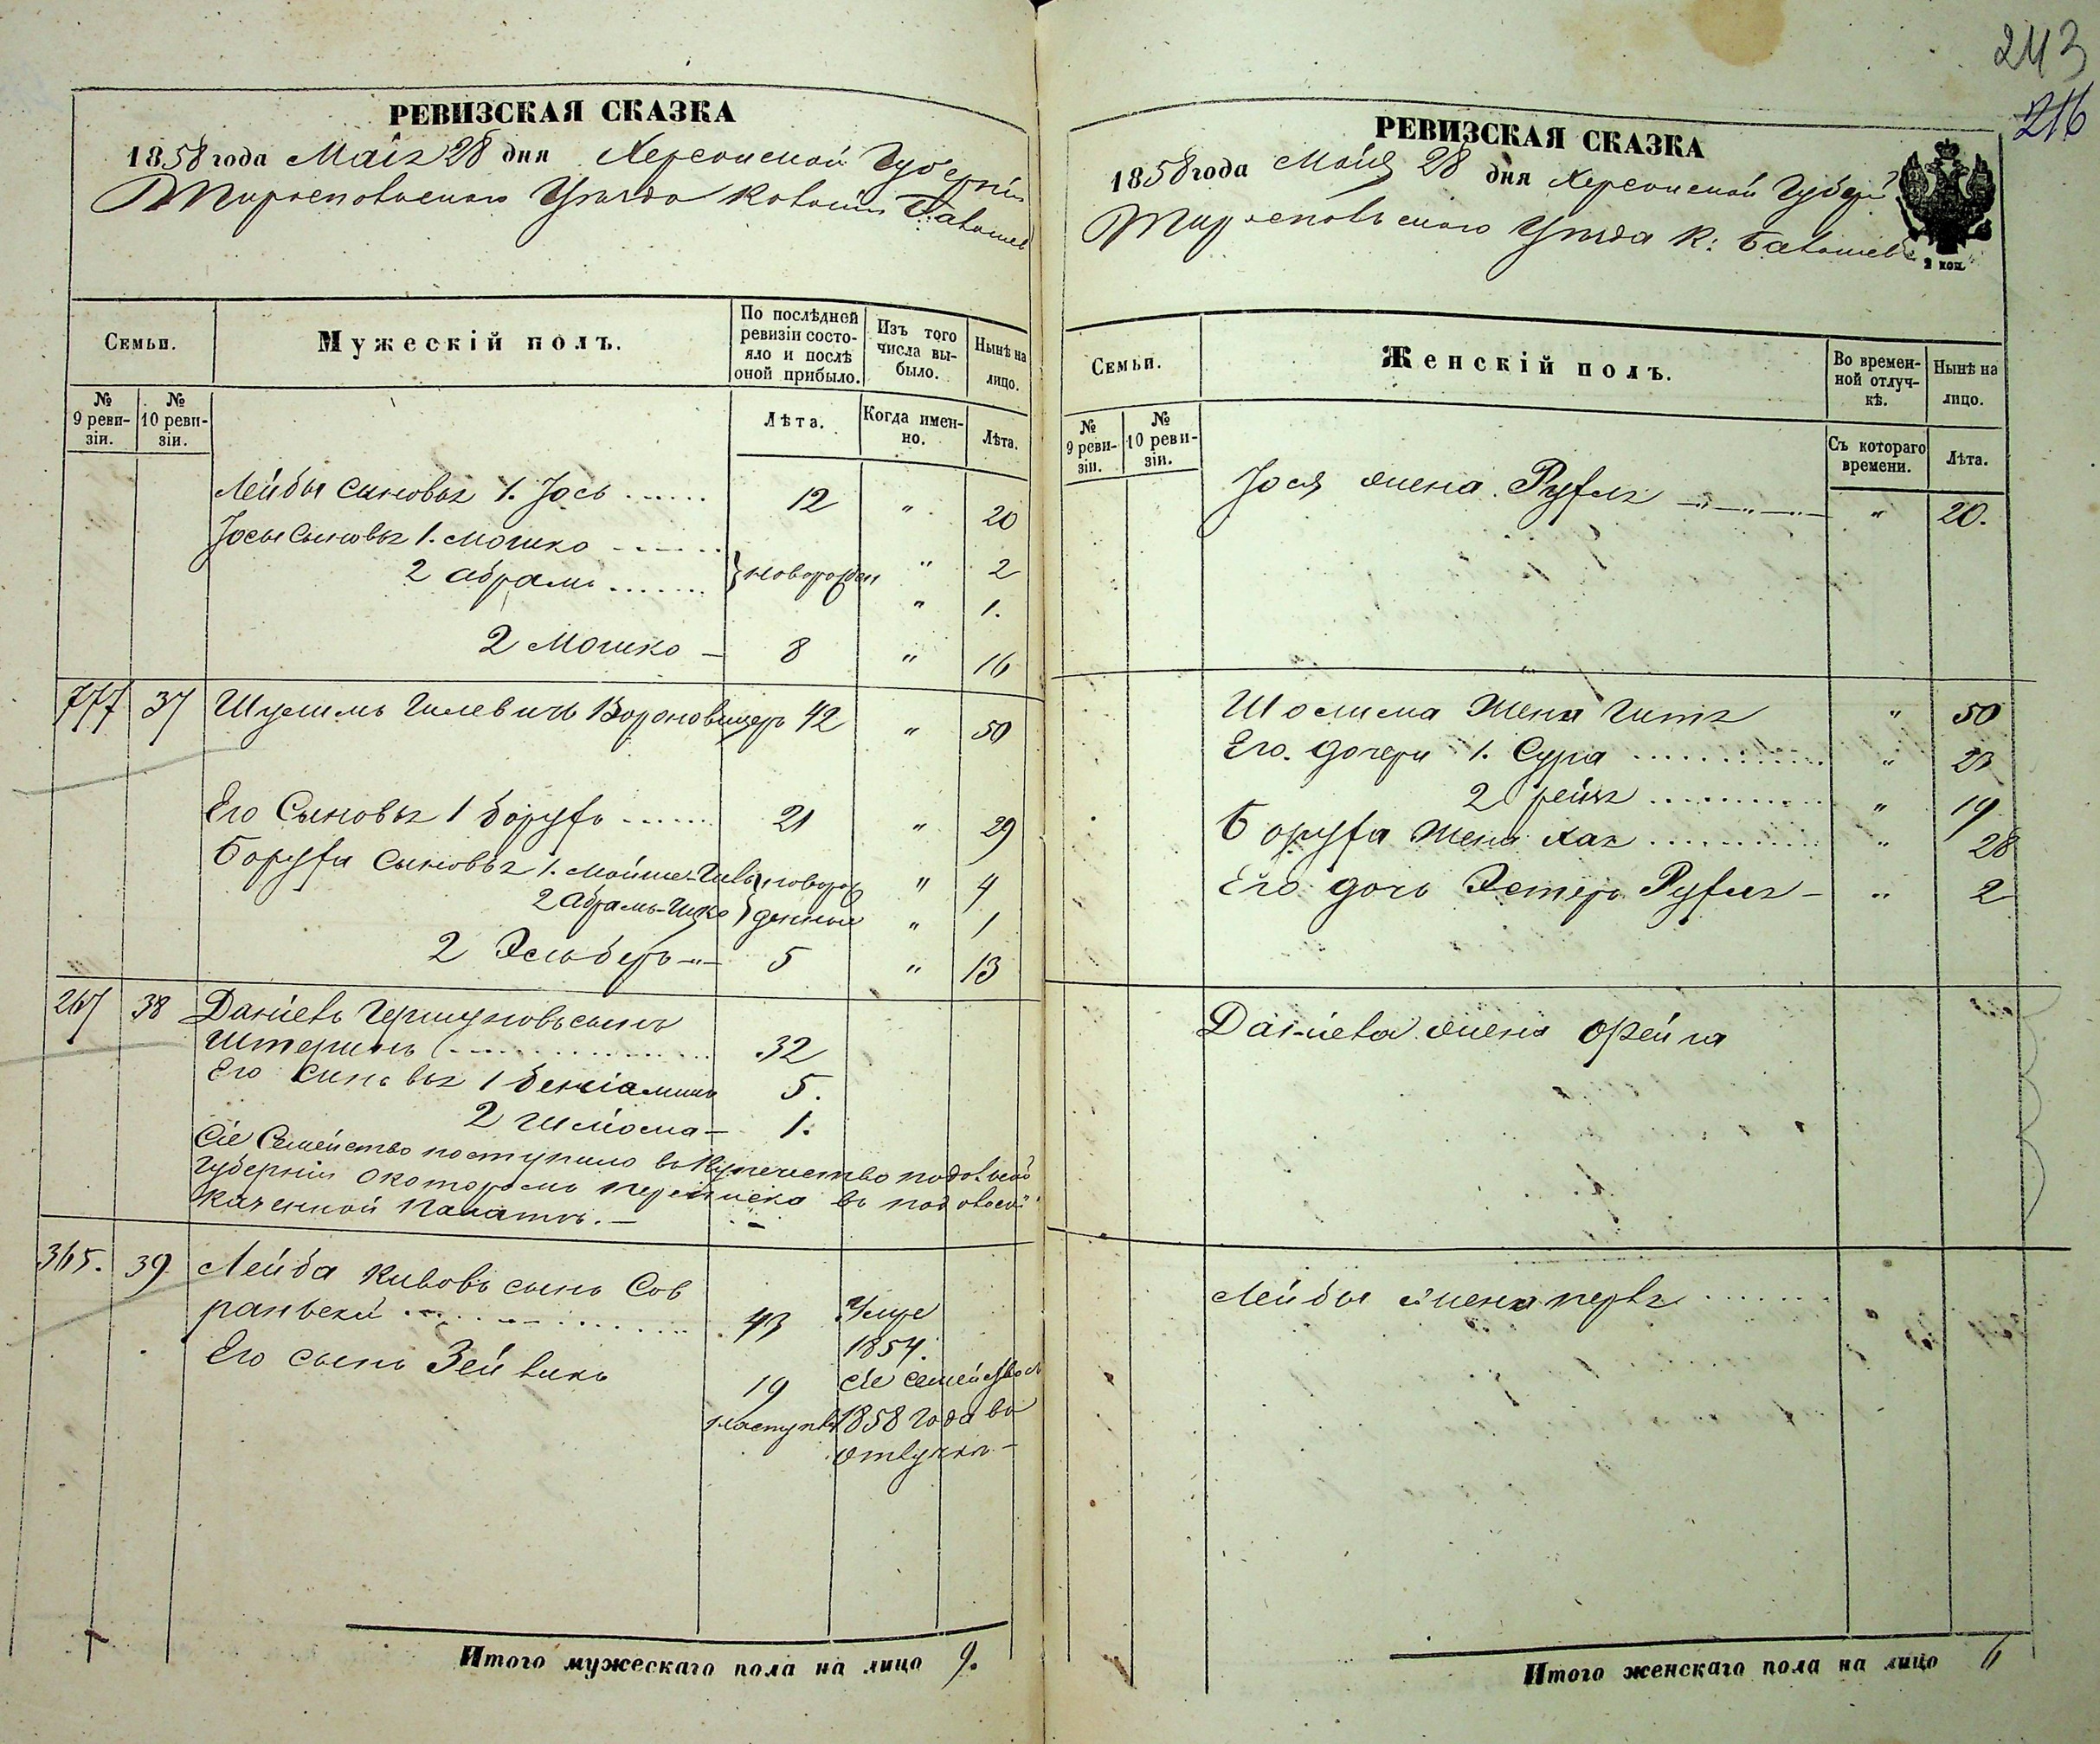 243
216
РЕВИЗСКАЯ СКАЗКА
1858 года Маія 28 дня Херсонской Губерніи
Тираспольскаго Уѣзда
Семьи.
Мужескій полъ.
По послѣдней ревизіи состояло и послѣ оной прибыло.
Изъ того числа выбыло.
Нынѣ на лицо.
№ 9 ревизіи.
№ 10 ревизіи.
Лѣта.
Когда именно.
Лѣта.
Лейбы сыновья 1. Іось 12 " 20
Іосы сыновья 1. Мошко } новорожден " 2
2 Абрамъ " 1.
2 Мошко 8 " 16
777 37 Шулимъ Гилевичъ Вороновицеръ 42 " 50
Его Сыновья 1 Борухъ 21 " 29
Боруха сыновья 1. Мойше- } новорож " 4
2 Абрамъ-Ицко } денный " 1
2 Эсльберъ 5 " 13
267 38 Даніель Гершковъ сынъ
Штернъ 32
Его сыновья 1 Беніаминъ 5.
2 Шліома 1.
Сіе Семейство поступило въ Купечество подольской
Губерніи о которомъ переписка въ подольской
Казенной Палатѣ.
365. 39 Лейба Кивовъ сынъ Сов
раньскій 43 Умре
1854.
Его сынъ Зейликъ 19 Сіе семейство съ
1858 года въ
отлучкѣ
Итого мужескаго пола на лицо 9.
РЕВИЗСКАЯ СКАЗКА
1858 года Маія 28 дня Херсонской Губерн
Тираспольскаго Уѣзда К:
2 коп.
Семьи.
Женскій полъ.
Во временной отлучкѣ.
Нынѣ на лицо.
№ 9 ревизіи.
№ 10 ревизіи.
Съ котораго времени.
Лѣта.
Іося жена Рухля " 20.
Шолима Жена Гитя " 50
Его дочери 1. Сура " 23
2 рейзя " 19
Боруха Жена Хая " 28
Его дочь Эстеръ Рухля " 2
Даніела жена Фейга
Лейбы жена перля
Итого женскаго пола на лицо 6